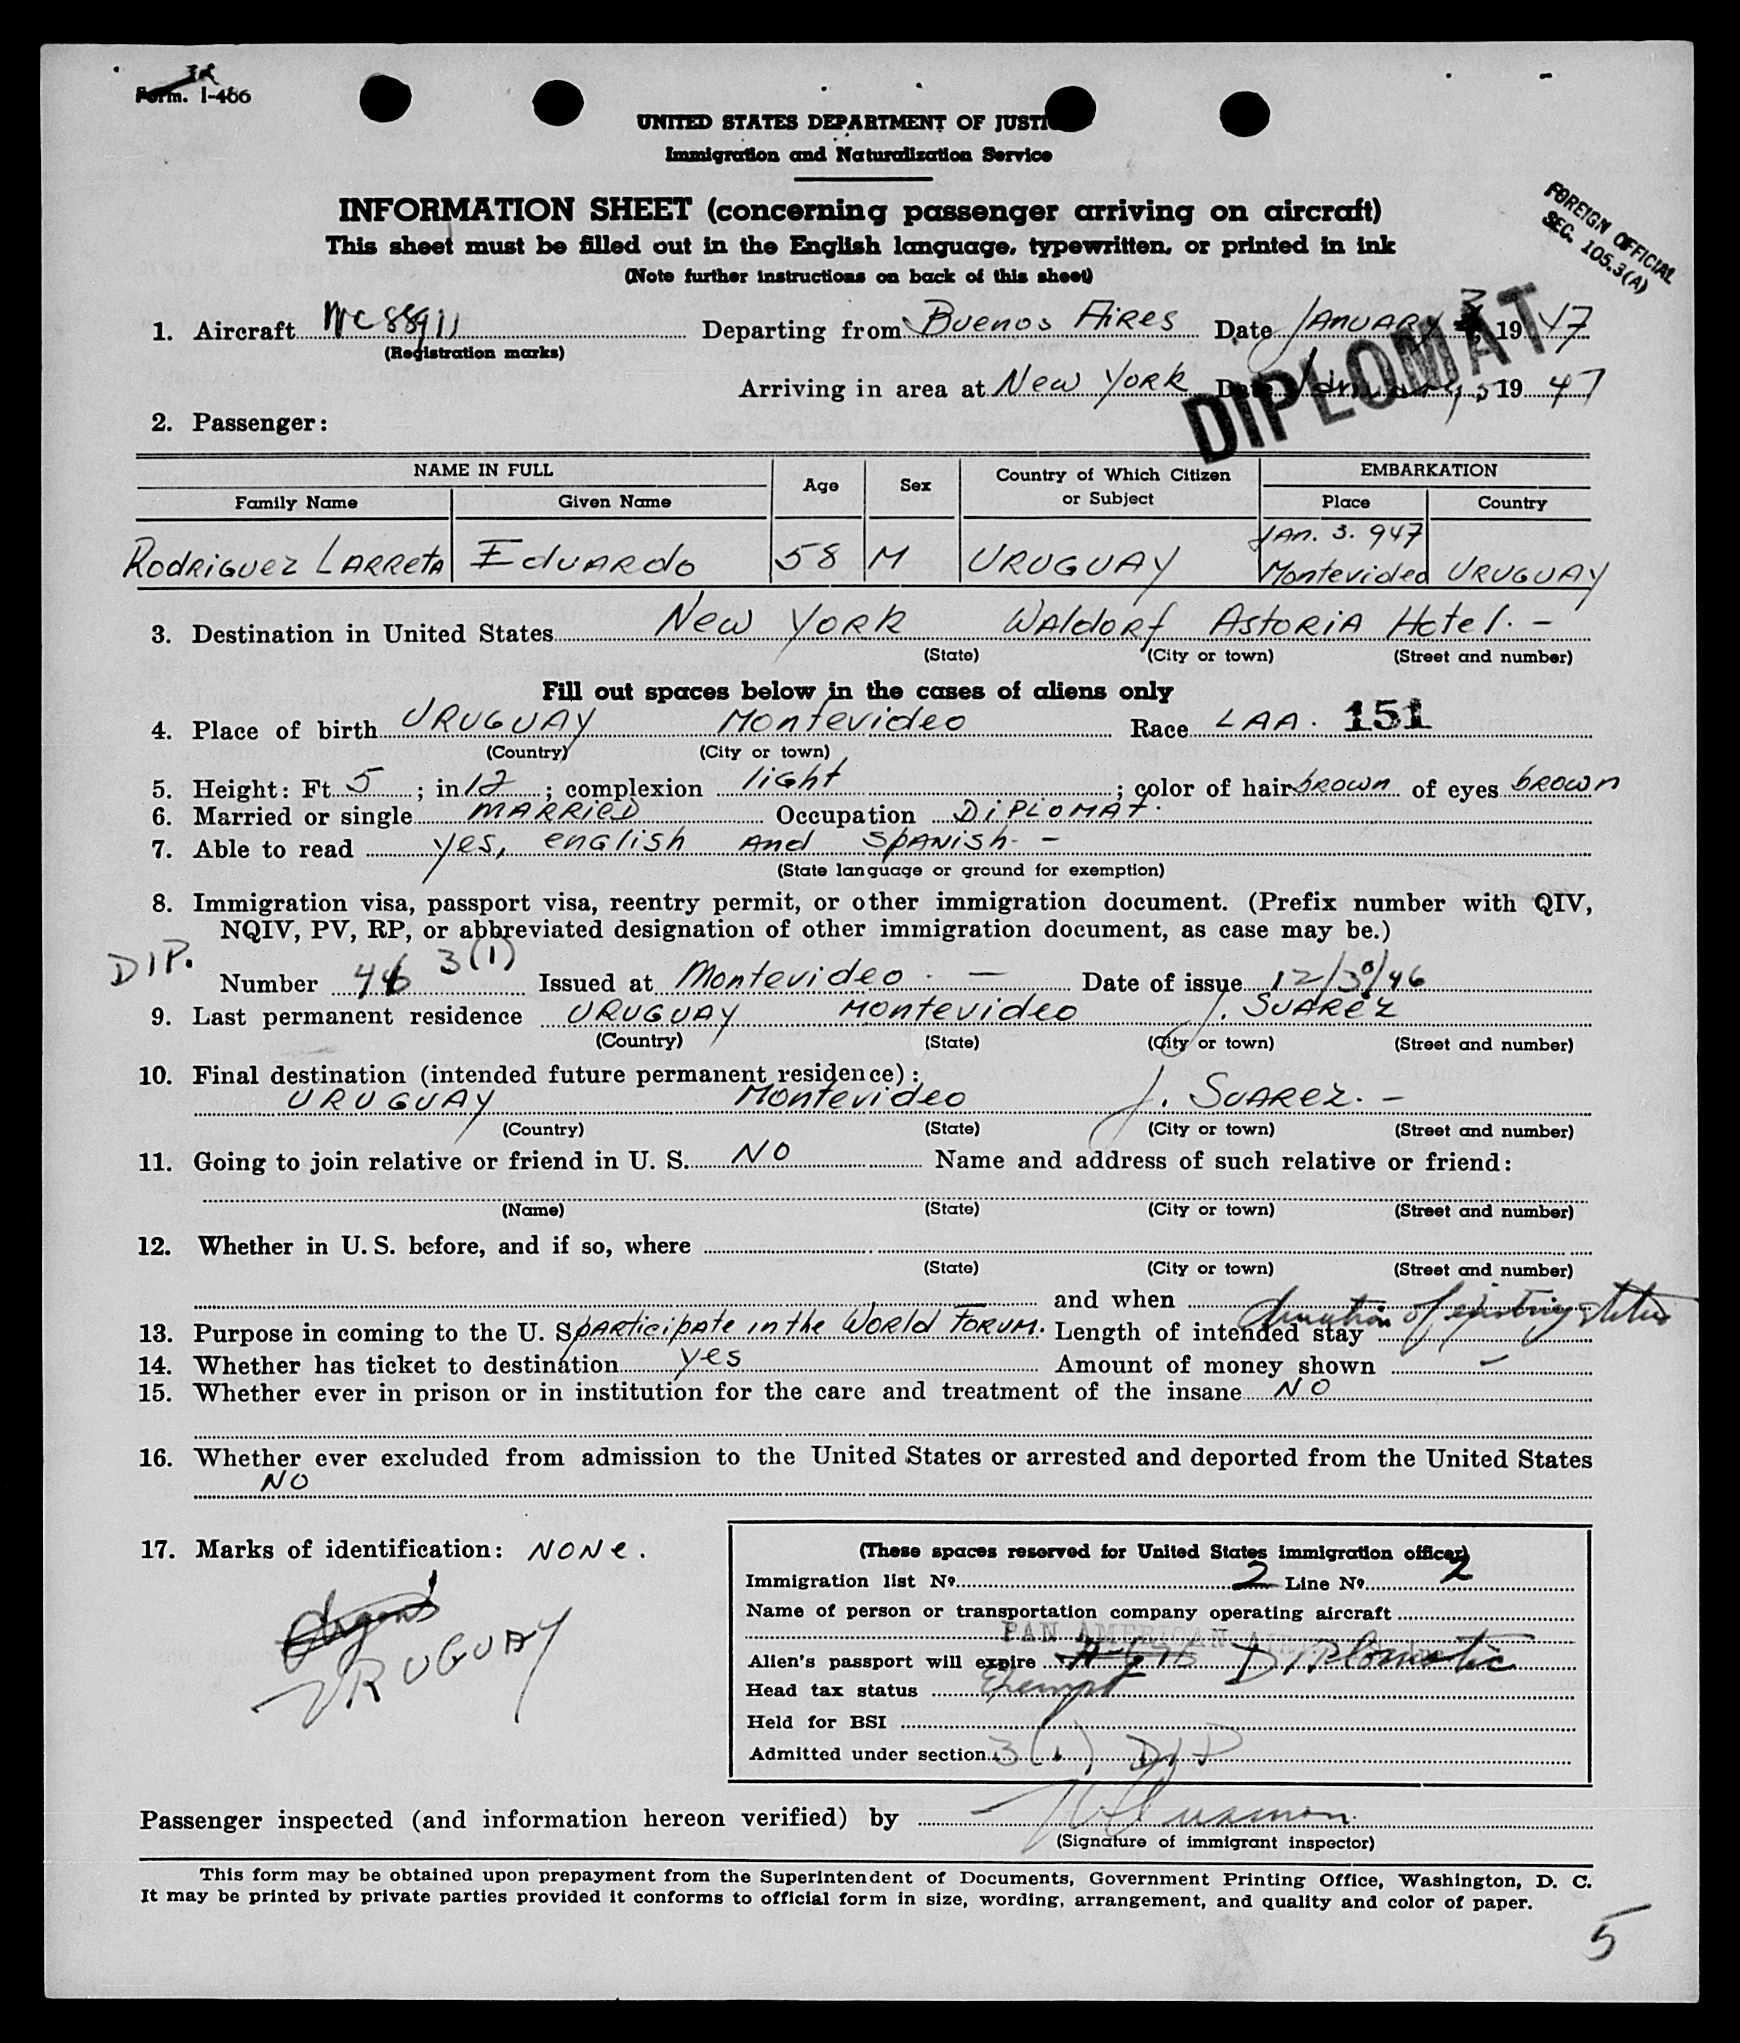 Form. I-466
UNITED STATES DEPARTMENT OF JUSTI
Immigration and Naturalization Service
INFORMATION SHEET (concerning passenger arriving on aircraft)
This sheet must be filled out in the English language, typewritten, or printed in ink
(Note further instructions on back of this sheet)
FOREIGN OFFICIAL
SEC. 105.3(A)
1. Aircraft NC88911 Departing from Buenos Aires Date January 3 1947
(Registration marks)
DIPLOMAT
Arriving in area at New York Date January 5 1947
2. Passenger:
NAME IN FULL Age Sex Country of Which Citizen or Subject EMBARKATION
Family Name Given Name Place Country
Jan. 3. 947
Rodriguez Larreta Eduardo 58 M Uruguay Montevideo Uruguay
3. Destination in United States New York Waldorf Astoria Hotel. -
(State) (City or town) (Street and number)
Fill out spaces below in the cases of aliens only
4. Place of birth Uruguay Montevideo Race LAA. 151
(Country) (City or town)
5. Height: Ft 5; in 12; complexion light; color of hair brown of eyes brown
6. Married or single married Occupation Diplomat.
7. Able to read yes, english and spanish. -
(State language or ground for exemption)
8. Immigration visa, passport visa, reentry permit, or other immigration document. (Prefix number with QIV,
NQIV, PV, RP, or abbreviated designation of other immigration document, as case may be.)
DIP. Number 46 3(1) Issued at Montevideo. - Date of issue 12/30/46
9. Last permanent residence Uruguay Montevideo J. Suarez
(Country) (State) (City or town) (Street and number)
10. Final destination (intended future permanent residence):
Uruguay Montevideo J. Suarez. -
(Country) (State) (City or town) (Street and number)
11. Going to join relative or friend in U. S. No Name and address of such relative or friend:
(Name) (State) (City or town) (Street and number)
12. Whether in U. S. before, and if so, where
(State) (City or town) (Street and number)
and when
13. Purpose in coming to the U. S. participate in the World Forum. Length of intended stay duration of existing status
14. Whether has ticket to destination yes Amount of money shown -
15. Whether ever in prison or in institution for the care and treatment of the insane No
16. Whether ever excluded from admission to the United States or arrested and deported from the United States
No
17. Marks of identification: None.
URUGUAY
(These spaces reserved for United States immigration officer)
Immigration list No. 2 Line No. 2
Name of person or transportation company operating aircraft
PAN AMERICAN
Alien's passport will expire Diplomatic
Head tax status Exempt
Held for BSI
Admitted under section 3(1) DIP
Passenger inspected (and information hereon verified) by
(Signature of immigrant inspector)
This form may be obtained upon prepayment from the Superintendent of Documents, Government Printing Office, Washington, D. C.
It may be printed by private parties provided it conforms to official form in size, wording, arrangement, and quality and color of paper.
5